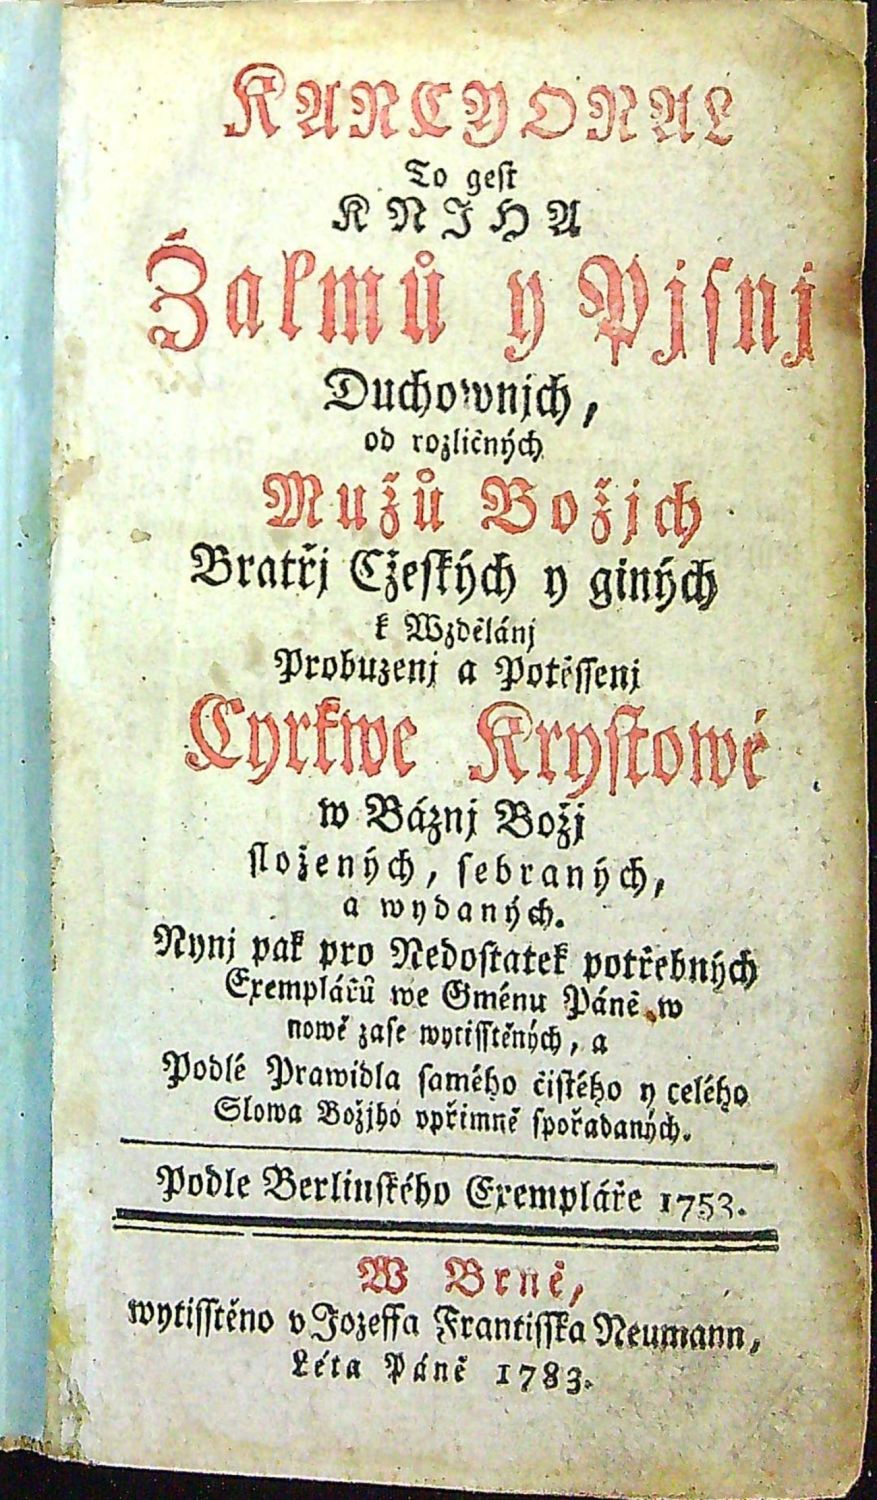 KANCYONAL
To geſt
KNJHA
Žalmů y Pjſnj
Duchownjch,
od rozličných
Mužů Božjch
Bratřj Cžeſkých y giných
k Wzdělánj
Probuzenj a Potěſſenj
Cyrkwe Kryſtowé
w Báznj Božj
ſložených, ſebraných,
a wydaných.
Nynj pak pro Nedoſtatek potřebných
Exemplářů we Gménu Páně w
nowě zaſe wytiſſtěných, a
Podlé Prawidla ſamého čiſtého y celého
Slowa Božjho vpřimně ſpořadaných.
Podle Berlinſkého Exempláře 1753.
W Brně,
wytiſſtěno v Jozeffa Frantiſſka Neumann,
Léta Páně 1783.